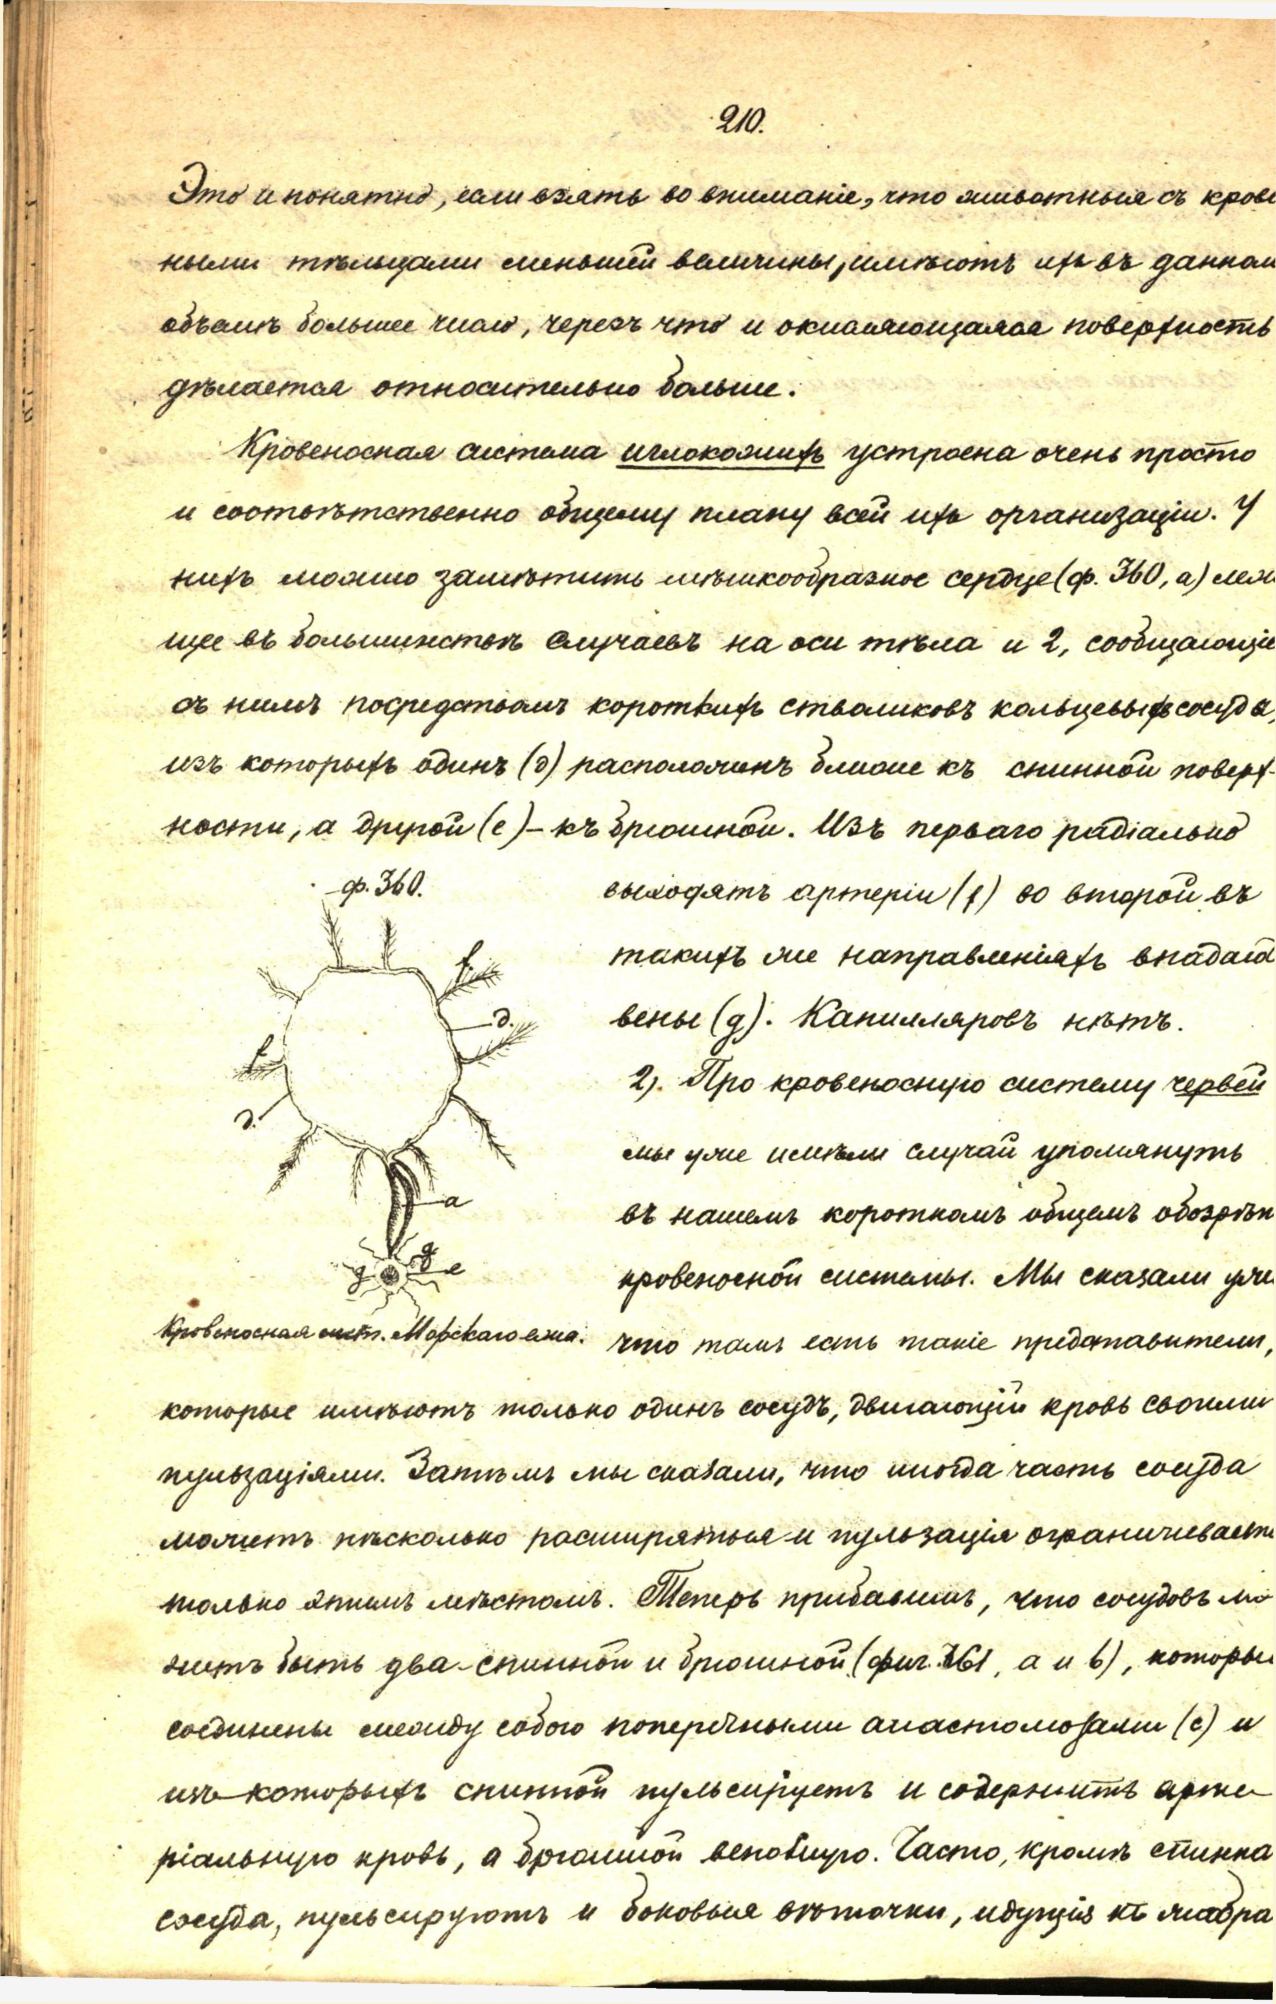 210.
Это и понятно, если взять во вниманіе, что животныя съ крове
ными тѣльцами меньшей величины, имѣютъ ихъ въ данном
объемѣ большее число, черезъ что и окисляющаяся поверхность
дѣлается относительно больше.
Кровеносная система иглокожихъ устроена очень просто
и соотвѣтственно общему плану всей ихъ организаціи. У
нихъ можно замѣтить мѣшкообразное сердце (ф. 360, а) лежа
щее въ большинствѣ случаевъ на оси тѣла и 2, сообщающіе
съ нимъ посредствомъ короткихъ стволиковъ кольцевыхъ сосуда,
изъ которыхъ одинъ (д) расположенъ ближе къ спинной поверх-
ности, а другой (е) – къ брюшной. Изъ перваго радіально
ф. 360.
выходятъ артеріи (f) во второй въ
такихъ же направленіяхъ впадаю
вены (g). Капилляровъ нѣтъ.
2). Про кровеносную систему червей
мы уже имѣли случай упомянуть
въ нашемъ короткомъ общемъ обозрѣн
кровеносной системы. Мы сказали уже
что тамъ есть такіе представители,
f.
д.
f
д.
а
g
g
е
Кровеносная сист. Морскаго ежа.
которые имѣютъ только одинъ сосудъ, двигающій кровь своими
пульзаціями. Затѣмъ мы сказали, что иногда часть сосуда
можетъ нѣсколько расширяться и пульзація ограничивается
только этимъ мѣстомъ. Теперь прибавимъ, что сосудовъ мо
жетъ быть два - спинной и брюшной (фиг. 361, а и b), которы
соединены между собою поперечными анастомозами (с) и
изъ которыхъ спинной пульсируетъ и содержитъ арте
ріальную кровь, а брюшной венозную. Часто, кромѣ спинна
сосуда, пульсируютъ и боковыя вѣточки, идущія къ жабра